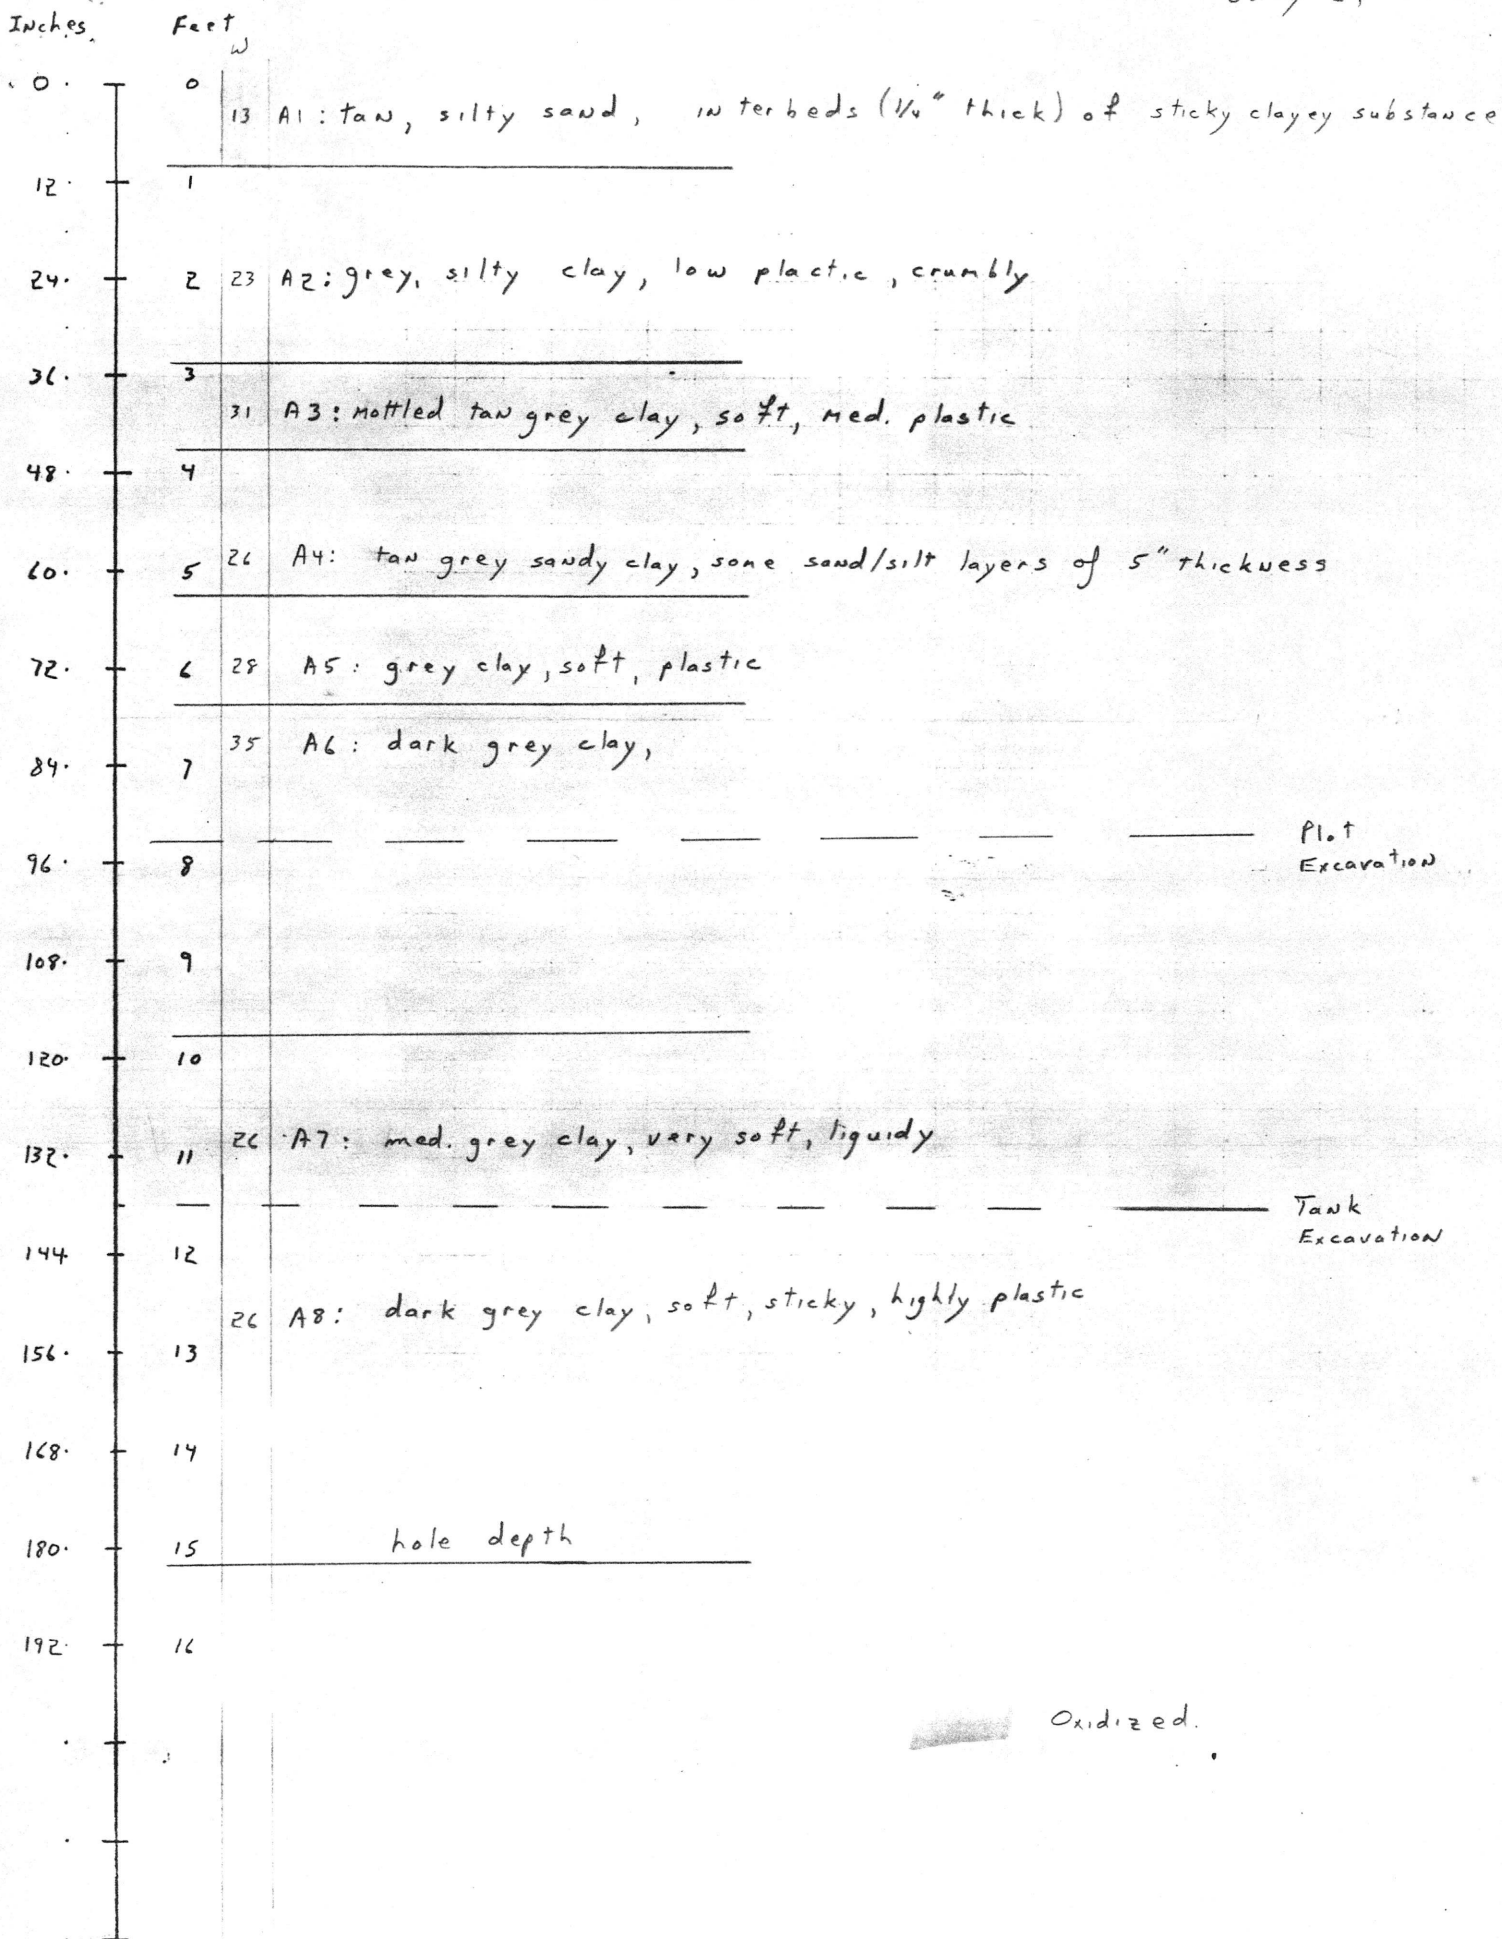 Inches Feet
W
0 0
13 A1: tan, silty sand, interbeds (1/4" thick) of sticky clayey substance
12 1
24 2 23 A2: grey, silty clay, low plactic, crumbly
36 3
31 A3: Mottled tan grey clay, soft, med. plastic
48 4
60 5 26 A4: tan grey sandy clay, some sand/silt layers of 5" thickness
72 6 28 A5: grey clay, soft, plastic
35 A6: dark grey clay,
84 7
Plot
Excavation
96 8
108 9
120 10
26 A7: med. grey clay, very soft, liquidy
132 11
Tank
Excavation
144 12
26 A8: dark grey clay, soft, sticky, highly plastic
156 13
168 14
180 15 hole depth
192 16
Oxidized.